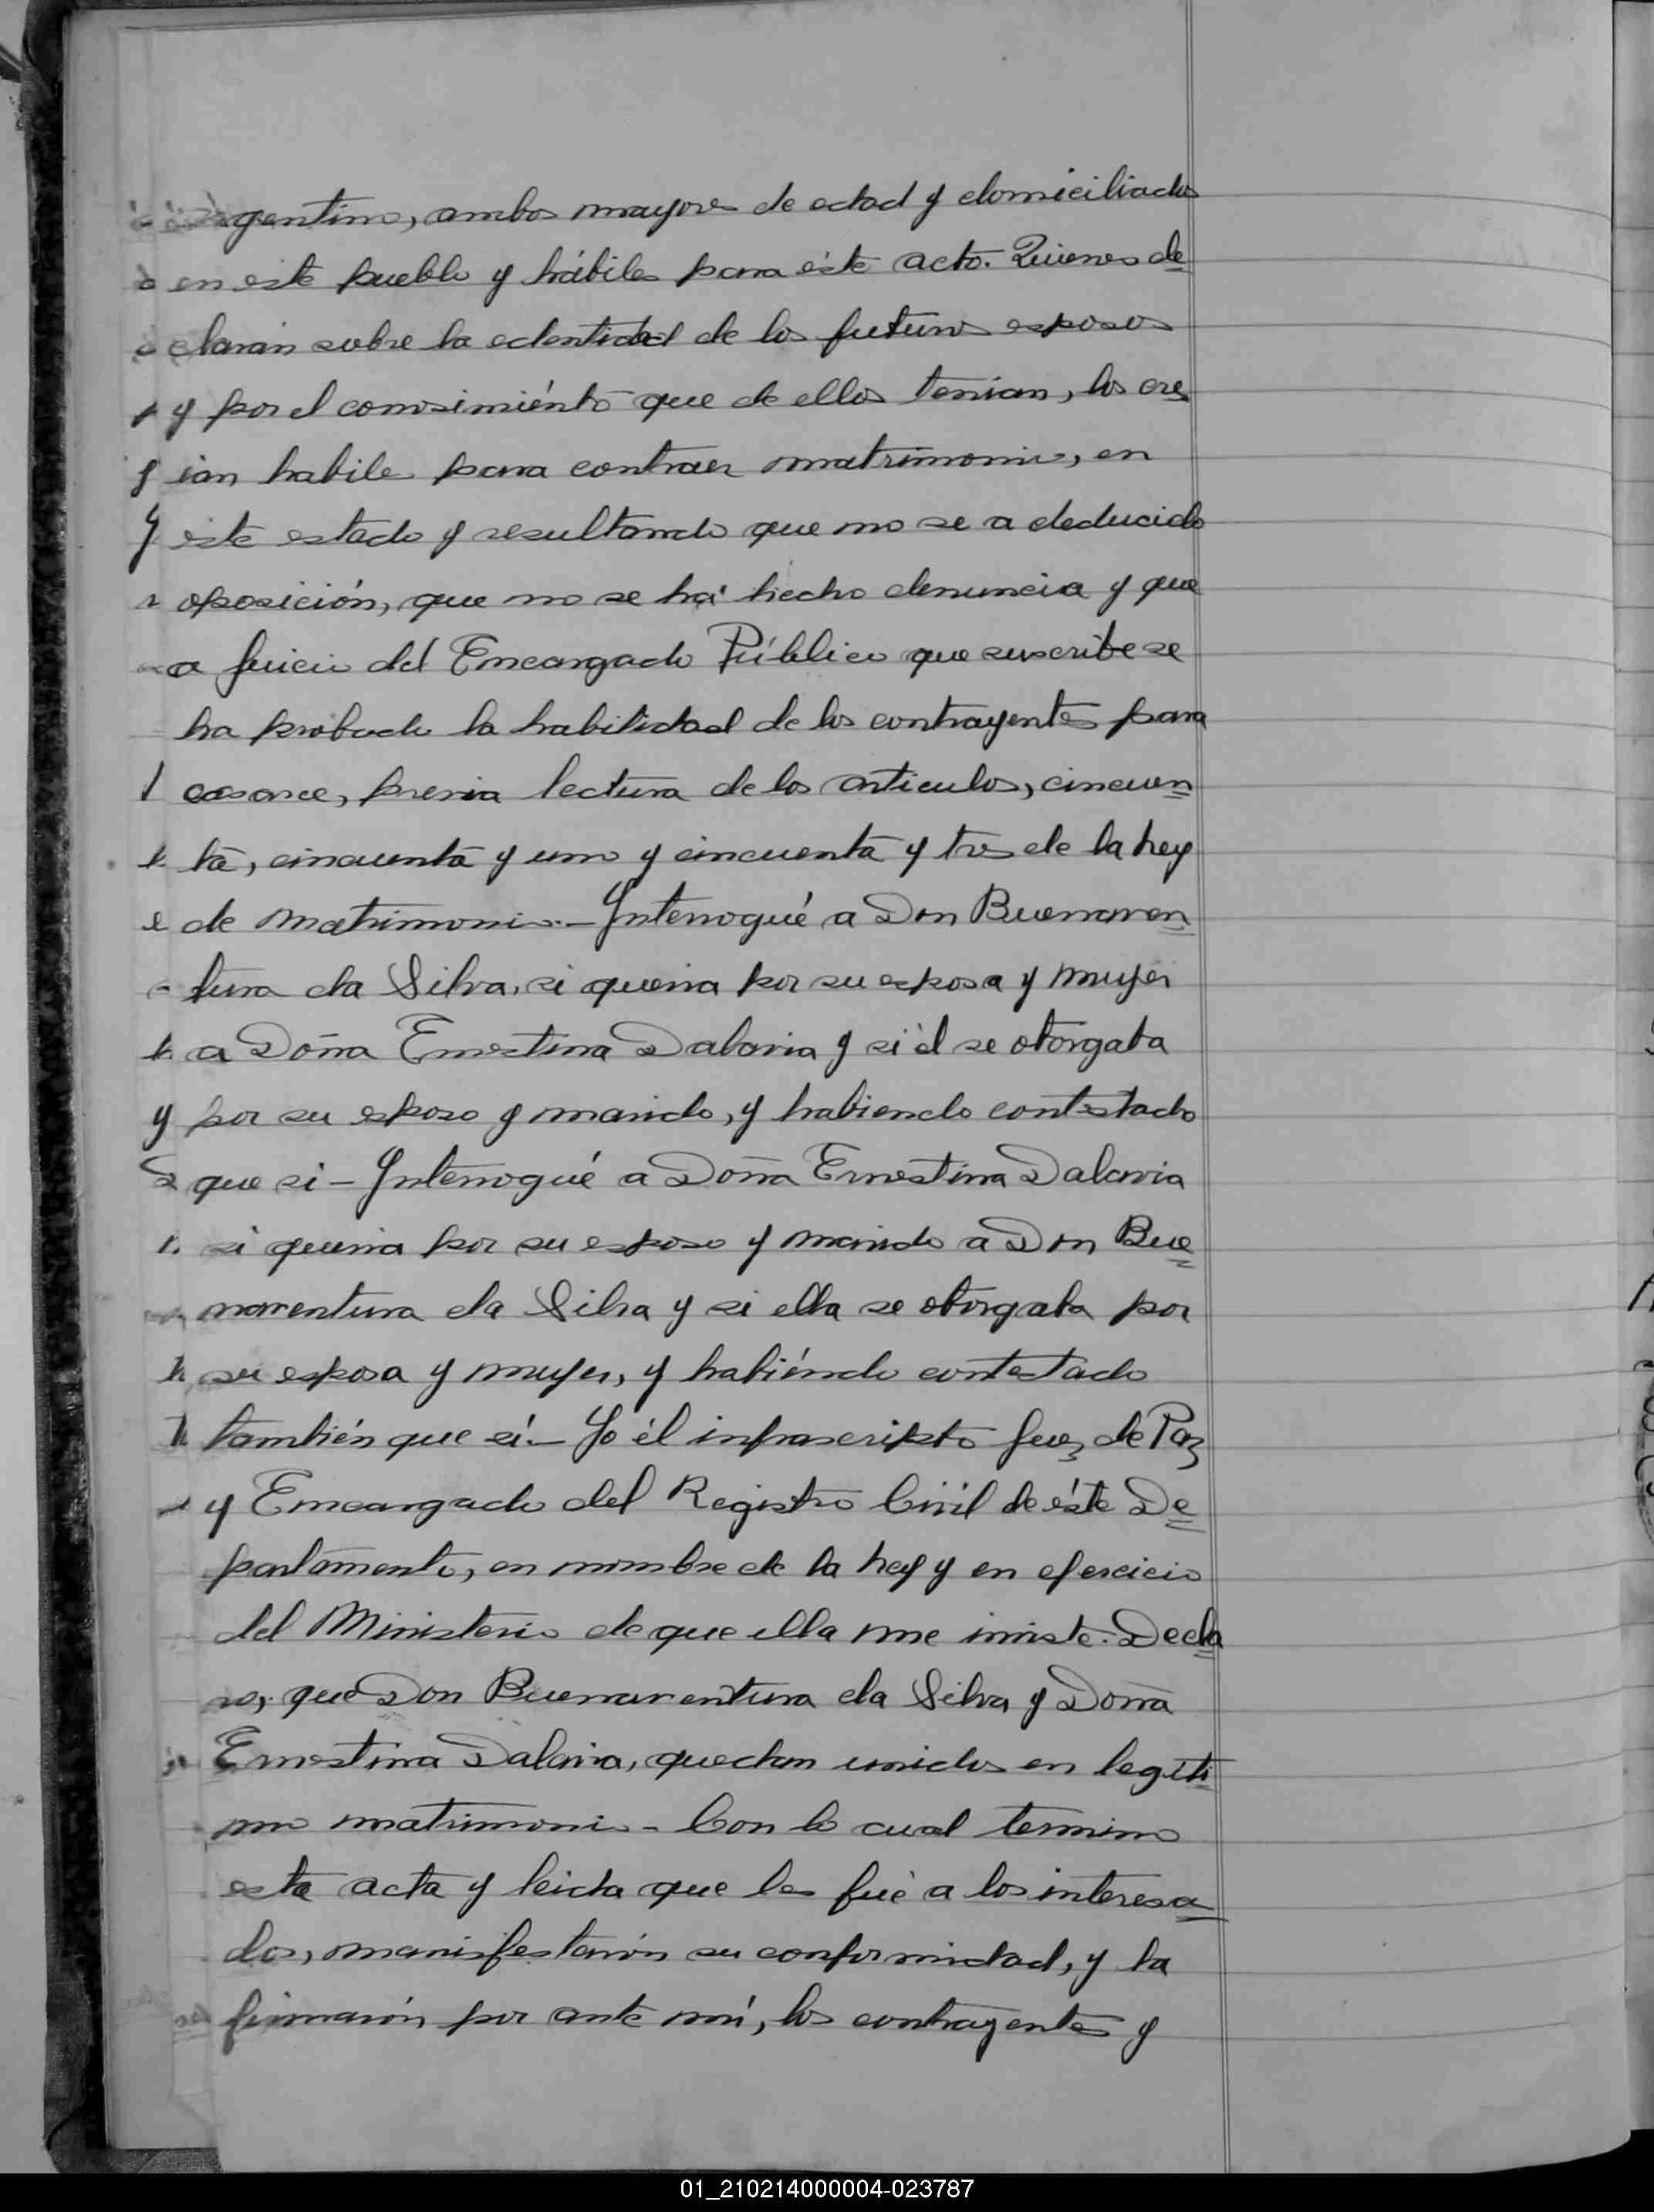 gentino, ambos mayores de edad y domiciliados
en este pueblo y hábiles para éste acto. Quienes de=
claran sobre la edentidad de los futuros esposos
y por el conosimiénto que de ellos tenian, los cre=
ian habile para contraer matrimonio, en
este estado y resultando que no se a deducido
oposición, que no se há hecho denuncia y que
a juicio del Emcargado Público que suscribe se
ha probado la habilidad de los contrayentes para
casarce, previa lectura de los articulos, cincuen=
ta, cincuenta y uno y cincuenta y tres de la ley
de Matrimonio.- Interrogué a Don Buenaven=
tura da Silva, si queria por su esposa y mujer
a Doña Ernestina Dalavia y si él se otorgaba
por su esposo y marido, y habiendo contestado
que si - Interrogué a Doña Ernestina Dalavia
si queria por su esposo y marido a Don Bue=
naventura da Silva y si ella se otorgaba por
su esposa y mujer, y habiéndo contestado
también que sí.- Yo él infrascripto Juez de Paz
y Emcargado del Registro Civil de éste De=
partamento, en nombre de la ley y en ejercicio
del Ministerio de que ella me inviste. Decla=
ro, que Don Buenaventura da Silva y Doña
Ernestina Dalavia, quedan unidos en legiti=
mo matrimonio - Con lo cual termino
esta acta y leida que les fué a los interesa=
dos, manisfestarón su conformidad, y la
firmarón por ante mí, los contrayentes y
01_210214000004-023787